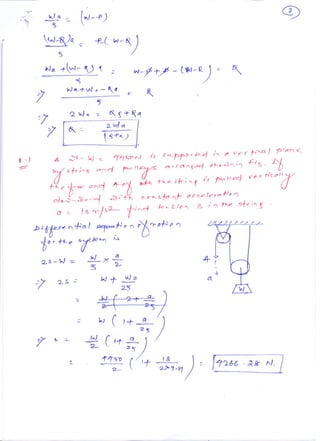 2
Wa/g = (W-P)
(W-Q)a/g = P-(W-Q)
Wa+(W-Q)a/g = W-P+P-(W-Q) = Q
=> Wa+Wa-Qa/g = Q
=> 2Wa = Qg+Qa
=> Q = 2Wa/(g+a)
A wt. W = 4450N is supported in a vertical plane
by string and pulleys arranged shown in fig. If
the free end A of the string is pulled vertically
downward with constant acceleration
a = 18 m/s² find tension S in the string.
Differential equation of motion
for the system is
2S-W = W/g × a/2
=> 2S = W + Wa/2g
= W ( 1+ a/2g )
=> S = W/2 ( 1+ a/2g )
= 4450/2 ( 1+ 18/2×9.81 ) = 4266.28 N.
A
a
W